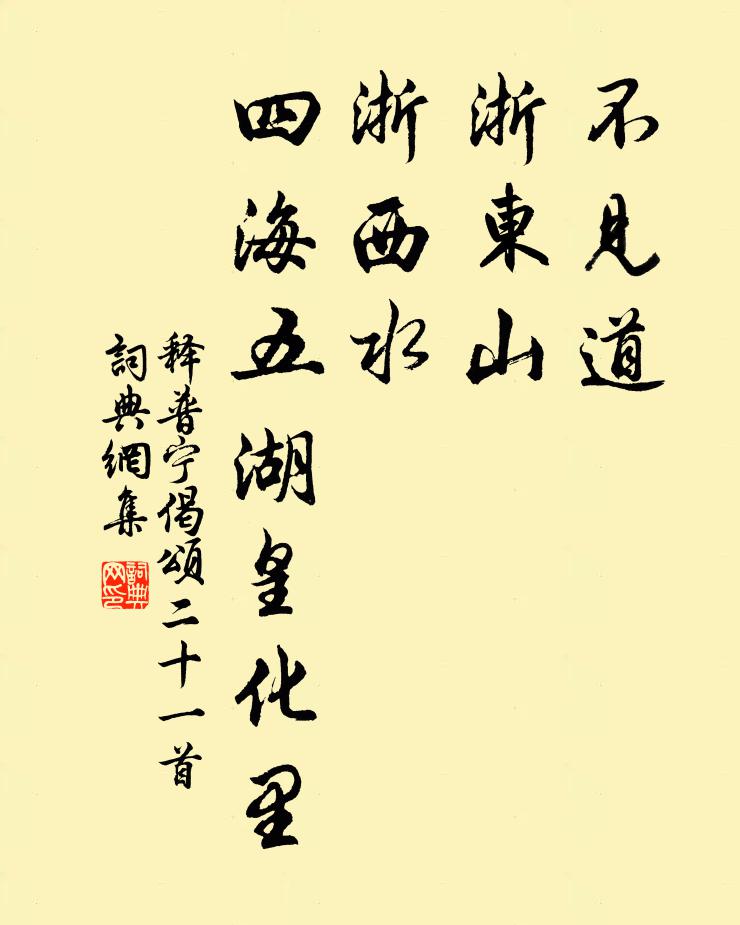 不見道
浙東山
浙西水
四海五湖皇化里
释普宁偈頌二十一首
詞典網集
詞典网印